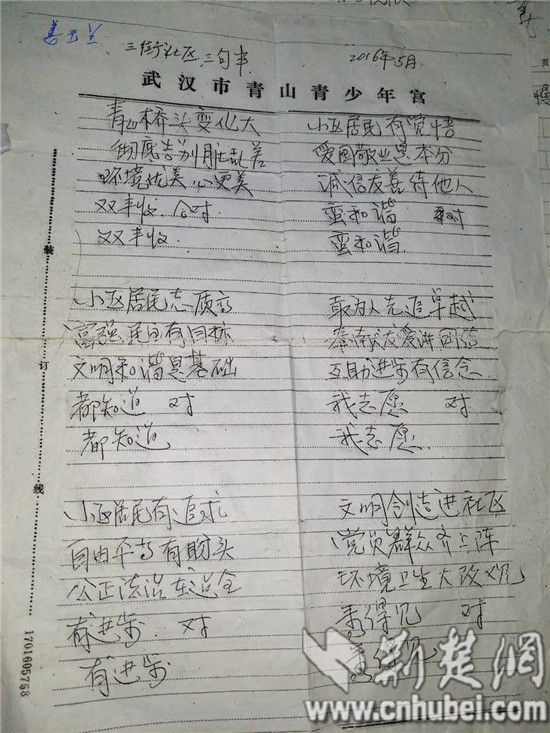 姜玉兰
三街社区 三句半
2016年5月
武汉市青山青少年宫
青山桥头变化大
彻底告别脏乱差
环境优美心更美
双丰收 对
双丰收
小区居民有觉悟
爱国敬业是本分
诚信友善待他人
蛮和谐 对
蛮和谐
小区居民志质高
富强民主有目标
文明和谐是基础
都知道 对
都知道
敢为人先追卓越
奉献友爱讲团结
互助进步有信念
我志愿 对
我志愿
小区居民有追求
自由平等有盼头
公正法治
有进步 对
有进步
文明创造进社区
党员群众齐上阵
环境卫生大改观
看得见 对
看得见
装
订
线
1701605758
新楚网
www.cnhubei.com